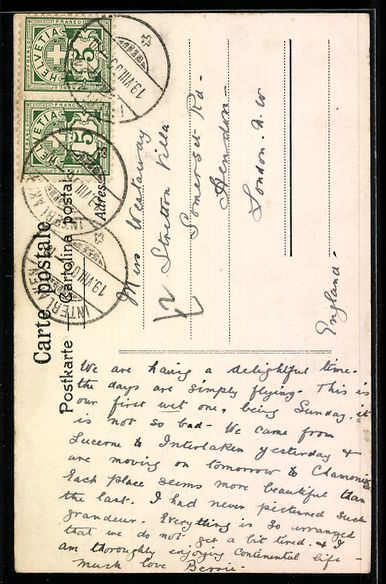 Carte postale
Postkarte Cartolina postale
Adresse
HELVETIA
5
FRANCO
HELVETIA
5
FRANCO
INTERLAKEN
19.VIII.
Miss Westaway
Stretton Villa
Somerset Rd-
Hendon-
London. N. W
England-
We are having a delightful time-
the days are simply flying. This is
our first wet one, being Sunday, it
is not so bad- We came from
Lucerne to Interlaken yesterday &
are moving on tomorrow to Chamonix
Each place seems more beautiful than
the last. I had never pictured such
grandeur. Everything is so arranged
that we do not get a bit tired. & I
am thoroughly enjoying Continental life-
much love Bessie.